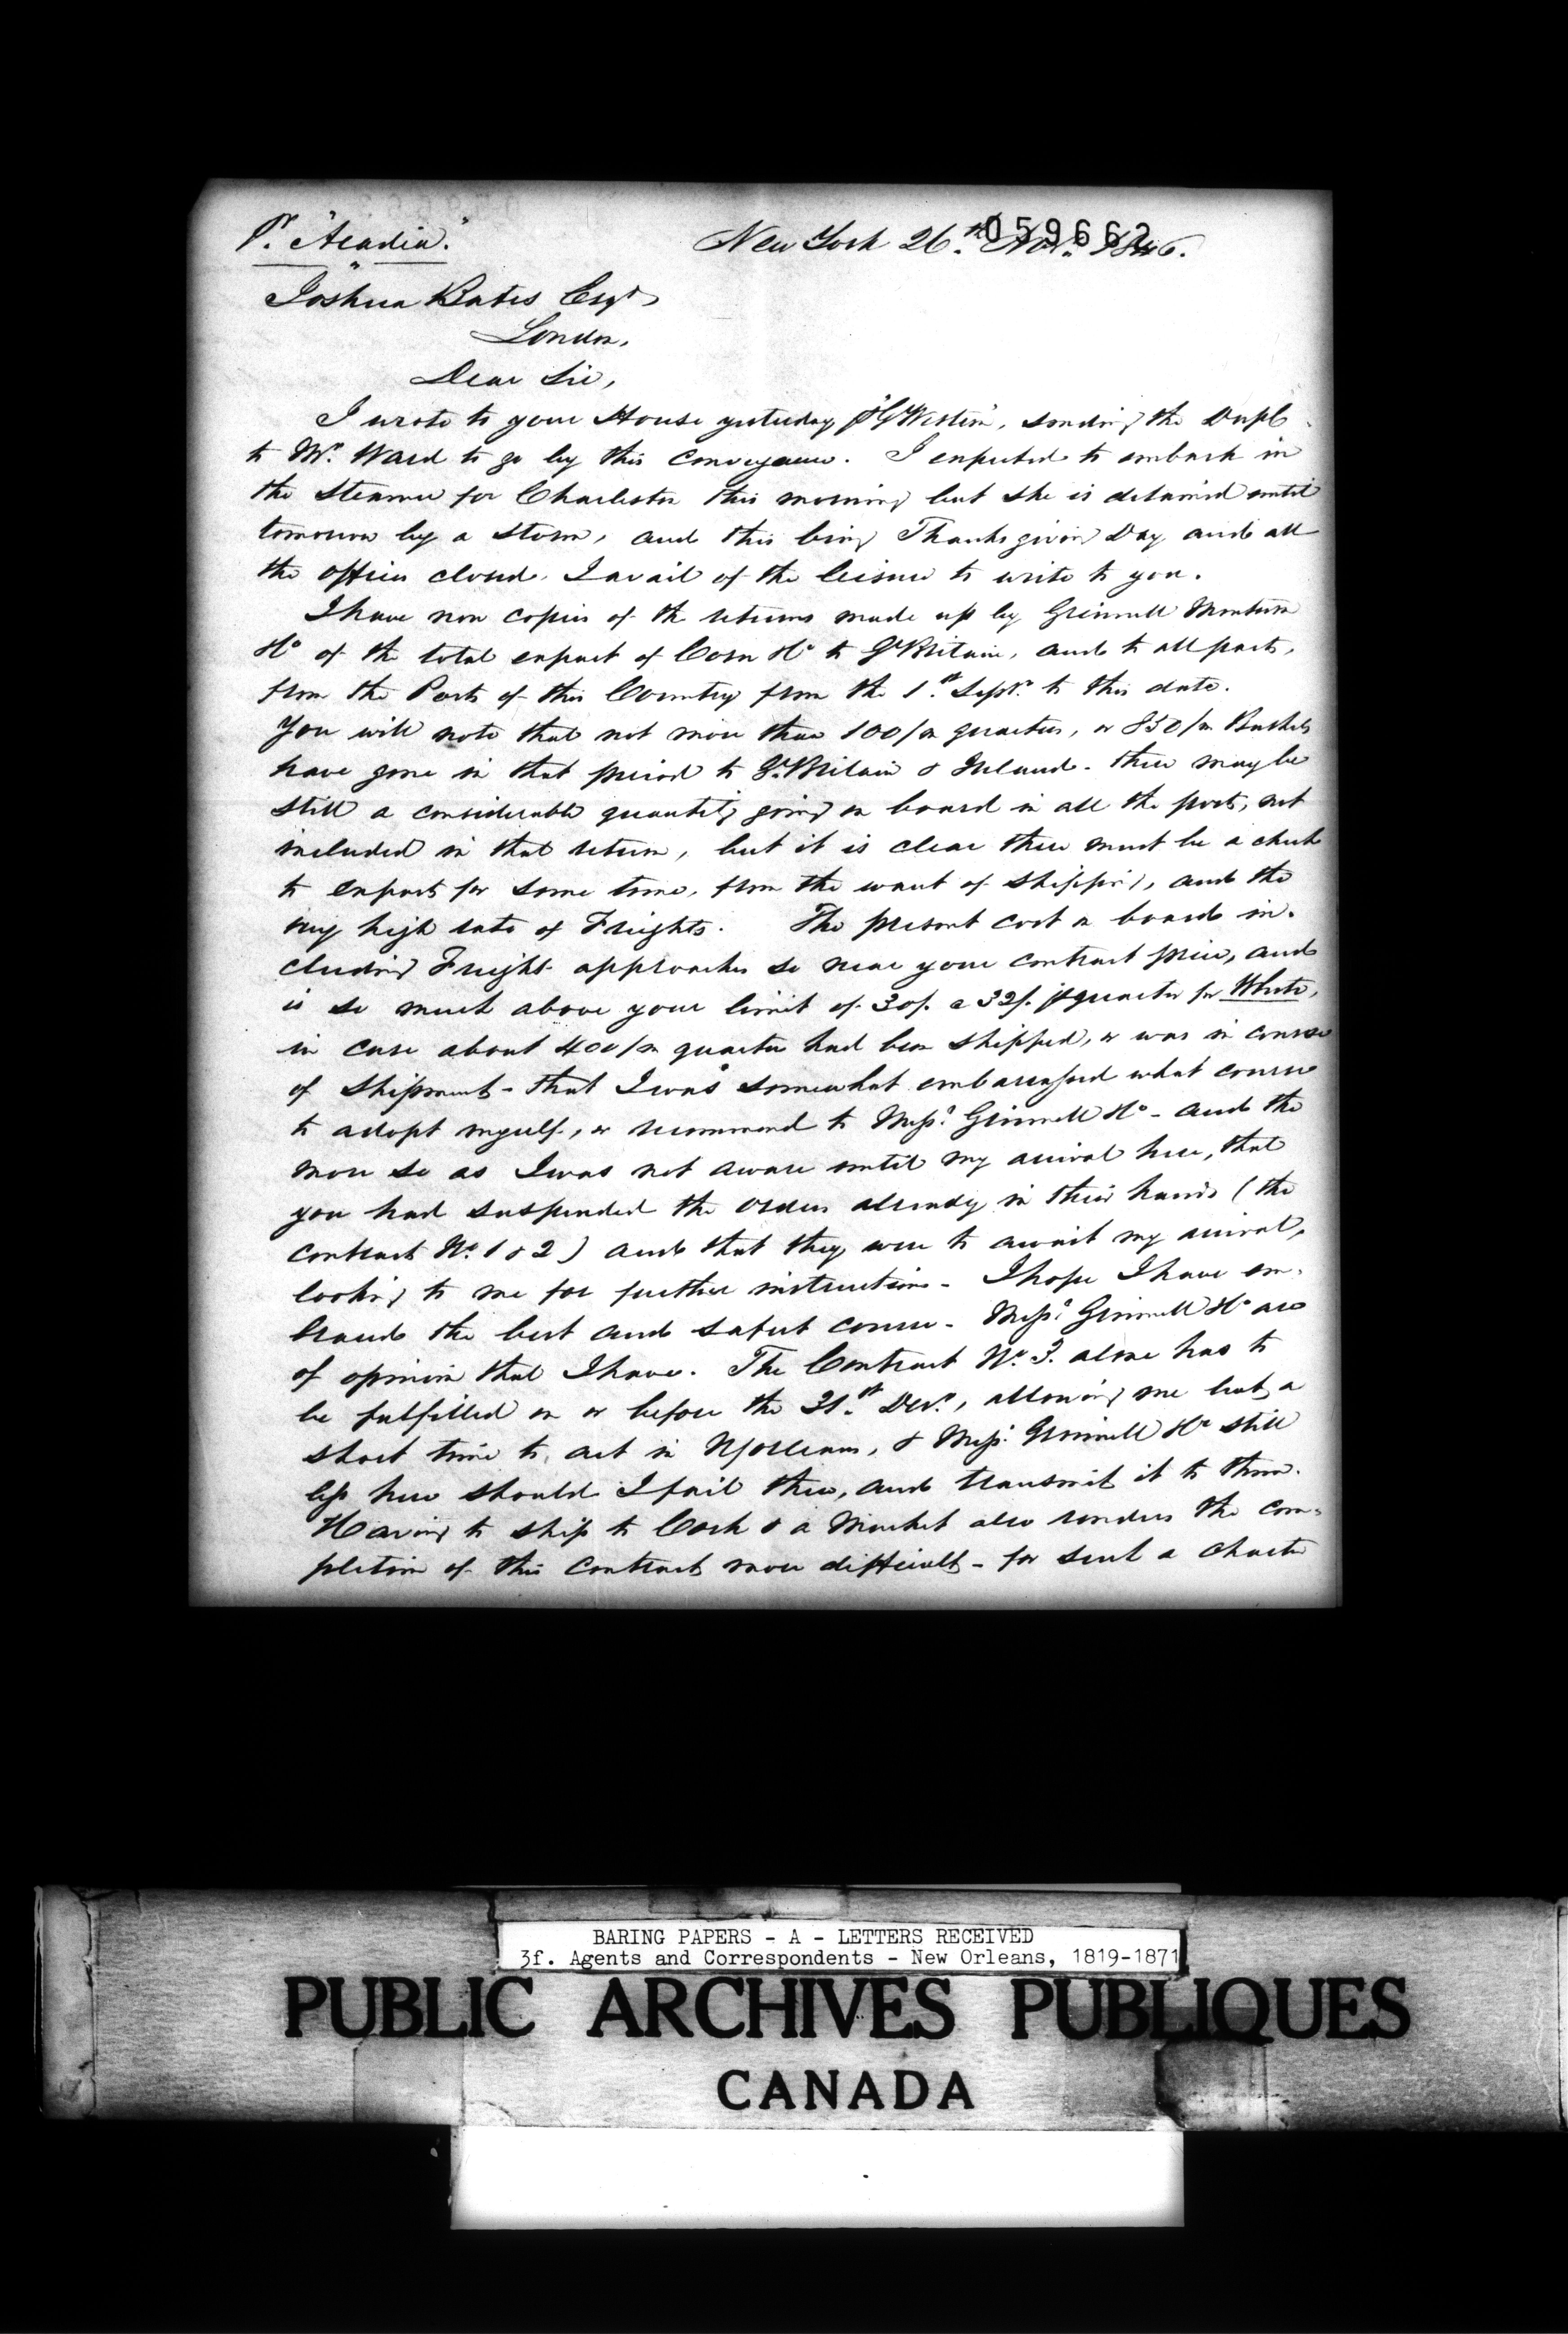 Pr. "Acadia." New York 26.th Novr. 1846.
059662
Joshua Bates Esqr
London.
Dear Sir,
I wrote to your House yesterday p "Gt Western", sending the Dupl
to Mr. Ward to go by this conveyance. I expected to embark in
the Steamer for Charleston this morning but she is detained until
tomorrow by a storm, and this being Thanksgiving Day and all
the offices closed, I avail of the leisure to write to you.
I have now copies of the returns made up by Grinnell Minturn
&Co of the total export of Corn &c to Gt Britain, and to all parts,
from the Ports of this Country from the 1.st Septr. to this date.
You will note that not more than 100/m quarters, or 850/m Bushels
have gone in that period to Gt. Britain & Ireland - there may be
still a considerable quantity going on board in all the ports, not
included in that return, but it is clear there must be a check
to exports for some time, from the want of shipping, and the
very high rate of Freights. The present cost on board in-
cluding Freight approaches so near your contract price, and
is so much above your limit of 30/. a 32/. p quarter for White,
in case about 400/m quarters had been shipped, or was in course
of shipment - that I was somewhat embarrassed what course
to adopt myself, or recommend to Messrs. Grinnell &Co - and the
more so as I was not aware until my arrival here, that
you had suspended the orders already in their hands (the
contracts No. 1 & 2) and that they were to await my arrival,
looking to me for further instructions - I hope I have em-
braced the best and safest course - Messrs. Grinnell &Co are
of opinion that I have. The Contract No. 3. alone has to
be fulfilled on or before the 31.st Decr., allowing me but a
short time to act in NOrleans, & Messrs. Grinnell &Co still
less here should I fail there, and transmit it to them.
Having to ship to Cork & a Market also renders the com-
pletion of this contract more difficult - for such a charter
BARING PAPERS - A - LETTERS RECEIVED
3f. Agents and Correspondents - New Orleans, 1819-1871
PUBLIC ARCHIVES PUBLIQUES
CANADA